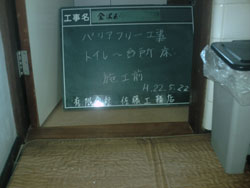 工事名
バリアフリー工事
トイレ〜台所 床
施工前
H22.5.22
有限会社 佐藤工務店